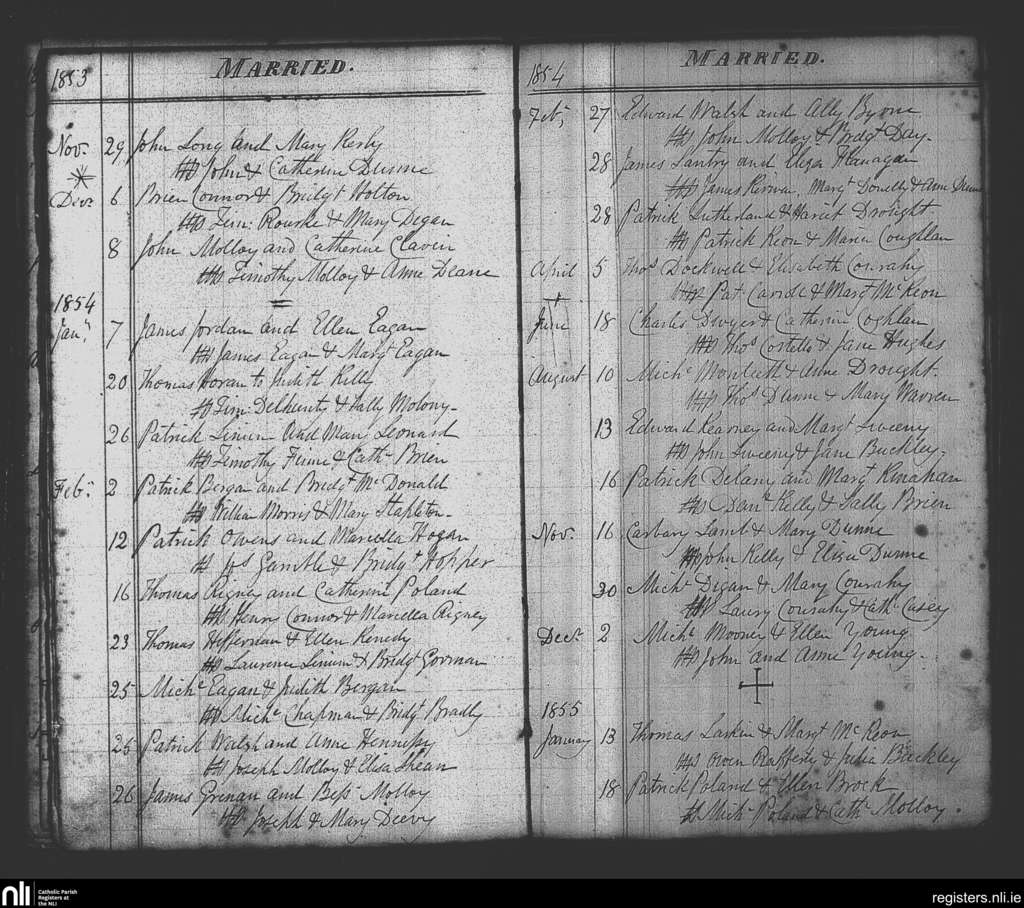 1853 MARRIED.
Nov. 29 John Long and Mary Kerby
John & Catherine Dunne
Decr 6 Brien Connor & Bridgt Holton
Tim: Rourke & Mary Degan
8 John Molloy and Catherine Claven
Timothy Molloy & Anne Deane
1854
Jany 7 James Jordan and Ellen Eagan
James Eagan & Margt Eagan
20 Thomas Horan to Judith Kelly
Tim: Delhunty & Sally Molony
26 Patrick Linien and Mary Leonard
Timothy Finne & Cath: Brien
Feby 2 Patrick Bergan and Bridgt McDonald
William Morris & Mary Stapleton
12 Patrick Owens and Marcella Hogan
Js Gamble & Bridgt Hopper
16 Thomas Rigney and Catherine Poland
Henry Connor & Marcella Rigney
23 Thomas Heffernan & Ellen Kenedy
Laurence Linien & Bridgt Gorman
25 Michl Eagan & Judith Bergan
Michl Chapman & Bridgt Bradly
25 Patrick Walsh and Anne Hennessy
Joseph Molloy & Elisa Shean
26 James Grenan and Bess Molloy
Joseph & Mary Deevy
1854 MARRIED.
Feby 27 Edward Walsh and Ally Byrne
John Molloy & Bridgt Day.
28 James Lantry and Eliza Flanagan
James Kirwan Margt Donelly & Anne Dunne
28 Patrick Sutherland & Hariet Drought
Patrick Keon & Maria Coughlan
April 5 Thos Dockwell & Elisabeth Conrahy
Pat: & Margt McKeon
June 18 Charles Dwyer & Catherine Coghlan
Thos Costello & Jane Hughes
August 10 Michl Monteeth & Anne Drought
Thos Dunne & Mary Warren
13 Edward Kearney and Margt Sweeny
John Sweeny & Jane Buckley
16 Patrick Delany and Margt Kinahan
Danl Kelly & Sally Brien
Nov. 16 Carbary Lamb & Mary Dunne
John Kelly & Elisa Dunne
30 Michl Degan & Mary Conrahy
Laury Conrahy & Cath: Casey
Decr 2 Michl Mooney & Ellen Young
John and Anne Young.
1855
January 13 Thomas Larkin & Margt McKeon
Owen Rafferty & Julia Buckley
18 Patrick Poland & Ellen Brock
Michl Poland & Cath: Molloy.
nli Catholic Parish
Registers at
the NLI
registers.nli.ie